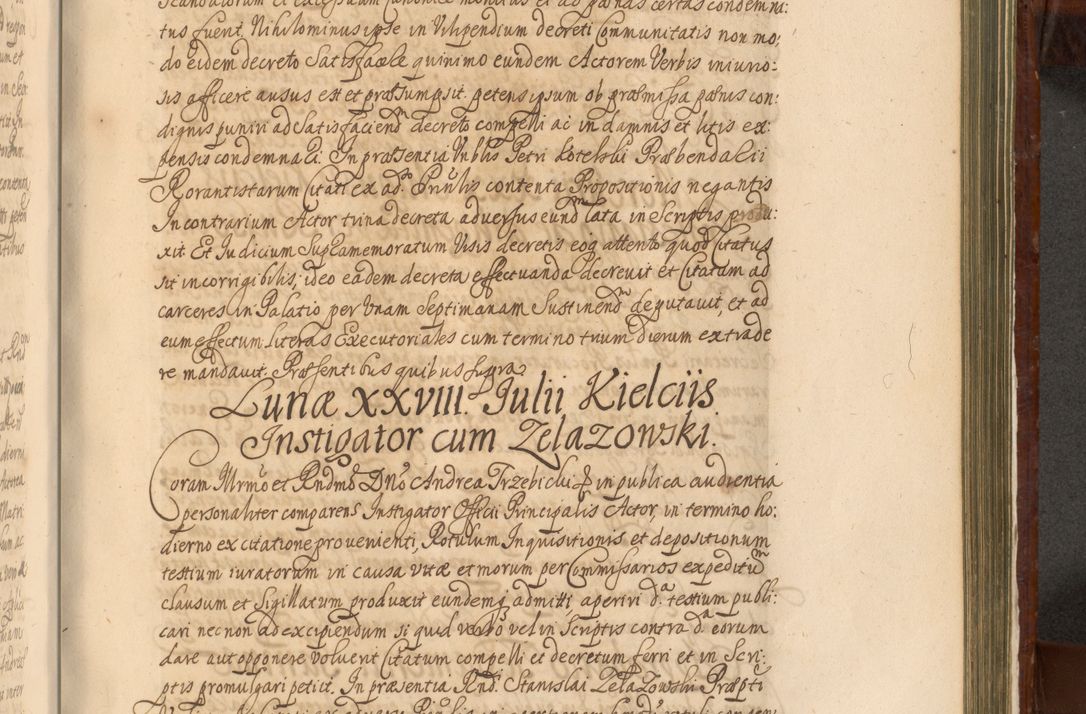 tus fuerit, Nihilominus ipse in Vilipendium decreti Communitatis non mo:
do eidem decreto Satisfacere quinimo eundem Actorem Verbis iniurio:
sis afficere ausus est et præsumpsit. petens ipsum ob præmissa pænis con:
dignis puniri ad Satisfaciend decreto compelli ac in damnis et litis ex:
pensis condemnari. In præsentia Vnblis Petri Kotelski Præbendarii
Rorantistarum Citati ex ad. Priulis contenta Propositionis negantis
In contrarium Actor trina decreta adversus eund lata in Scriptis produ:
xit. Et Iudicium Suplamemoratum Visis decretis eoq attento quod Citatus
sit incorrigibilis, ideo eadem decreta effectuanda decrevit et Citatum ad
carceres in Palatio per Vnam Septimanam Sustinend deputavit, et ad
eum effectum literas Executoriales cum termino trium dierum extrade
re mandavit. Præsentibus quibus supra
Lunæ XXVIII. Iulii Kielciis.
Instigator cum Zelazowski.
Coram Illrmo et Rndmo Dno Andrea Trzebicki in publica audientia
personaliter comparens Instigator Officii Principalis Actor, in termino ho:
dierno ex citatione provenienti, Rotulum Inquisitionis et depositionum
testium iuratorum in causa vitæ et morum per Commissarios expeditum
clausum et Sigillatum produxit eundemq admitti aperiri d. testium publi:
cari nec non ad excipiendum si quid verbo vel in Scriptis contra d. eorum
dare aut opponere voluerit Citatum compelli et decretum ferri et in Scri:
ptis promulgari petiit. In præsentia Rnd. Stanislai Zelazowski Præpti